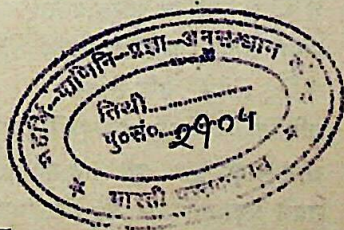 महर्षि-पाणिनि-प्रज्ञा-अनुसन्धान
तिथी..............
पु०सं०..२१०५
* भारती *